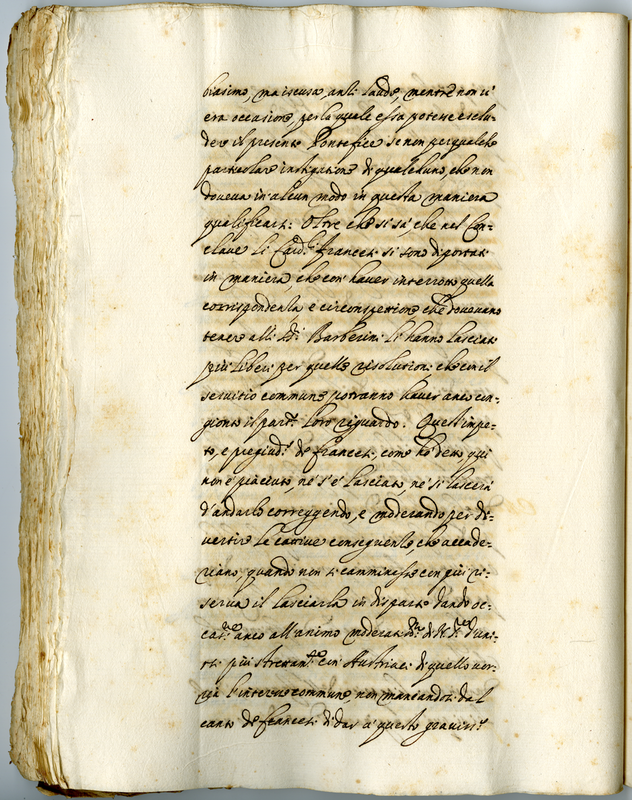 biasimo, ma scusa, anzi laude, mentre non v'
era occasione, per la quale essa potesse esclu-
dere il presente Pontefice se non per qualche
particolare instigatione di qualch'uno, che non
doveva in alcun modo in questa maniera
qualificarsi: Oltre che si sà, che nel Con-
clave li Card.i francesi si sono diportati
in maniera, che con haver interrotto quella
corrispondenza e circonspettione che dovevano
tenere alli Barberini li hanno lasciati
più liberi per quelle risolutioni che con il
servitio commune potranno haver anco con-
gionto il part.e loro riguardo. Quest'impe-
to, e pregiud.o de francesi, come hò detto qui
non è piaciuto, nè s'è lasciato, nè si lascerà
d'andarlo correggendo, e moderando per di-
vertire le cattive conseguenze, che accade-
riano quando non si camminasse con più ri-
serva il lasciarla in disparte dando oc-
cas.e anco all'animo moderat. di d'uni-
rsi più strettam.te con Austriaci di quello vor-
ria l'interesse commune non mancandosi dal
canto de francesi di dar a questo graviss.o